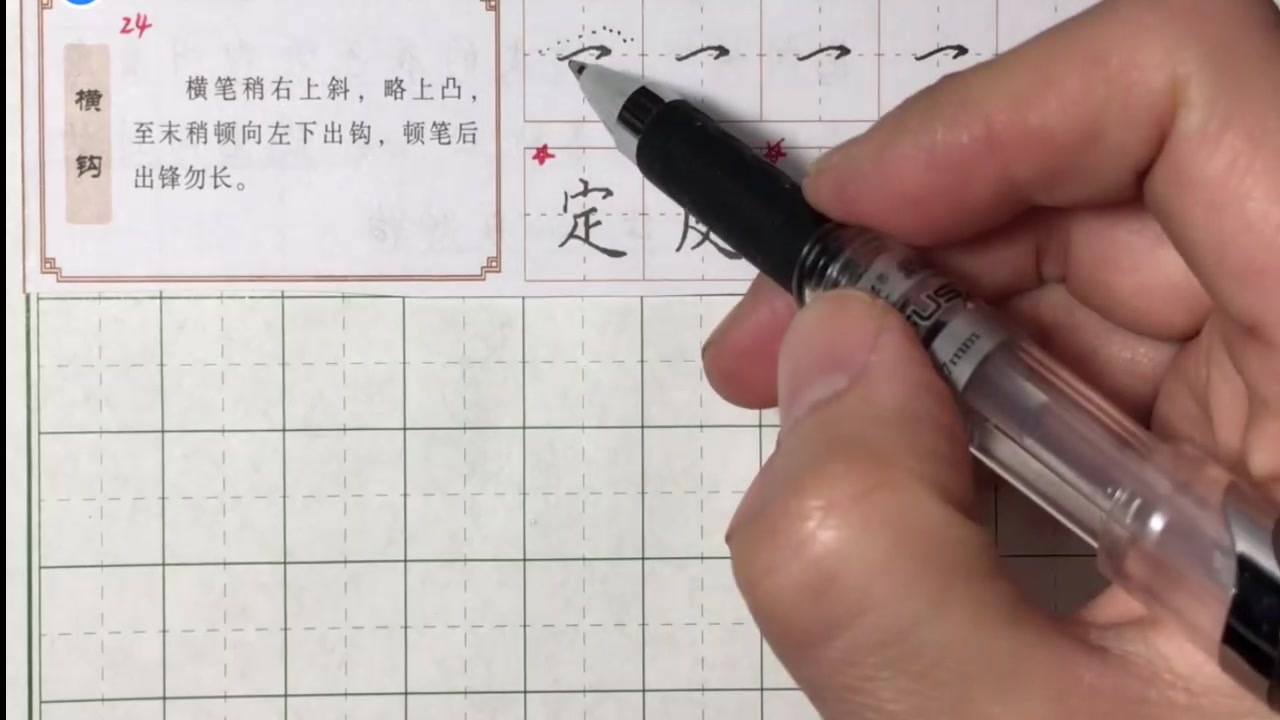 24
横钩
横笔稍右上斜，略上凸，
至末稍顿向左下出钩，顿笔后
出锋勿长。
定